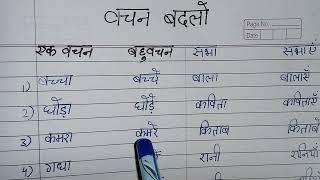 वचन बदलो
Page No.
Date
एक वचन बहुवचन सभा सभाएं
1) बच्चा बच्चें बाला बालाएँ
2) घोड़ा घोड़ें कविता कविताएँ
3) कमरा कमरें किताब किताबें
4) गधा रानी रानियाँ